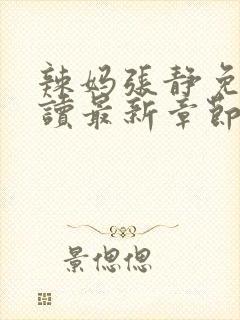 辣妈張静免
讀最新章節
景偲偲